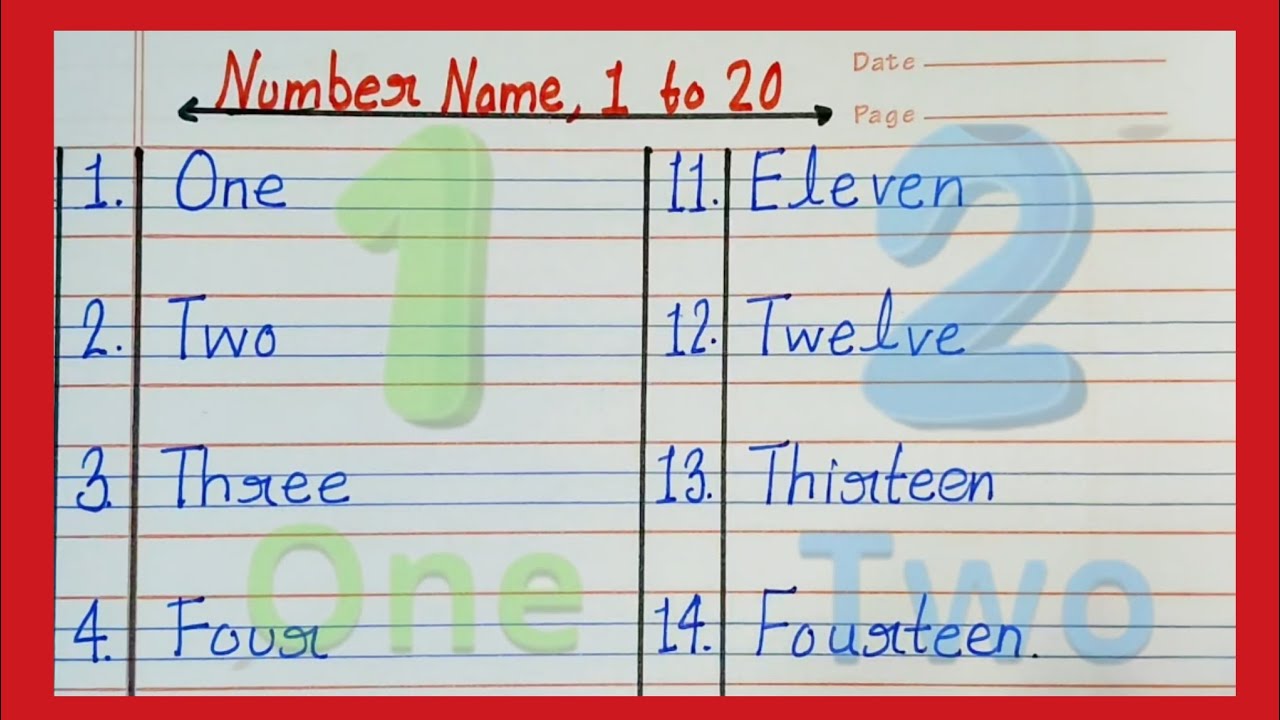 Number Name, 1 to 20
Date
Page
1. One
11. Eleven
2. Two
12. Twelve
3. Three
13. Thirteen
4. Four
14. Fourteen.
1
2
One
Two